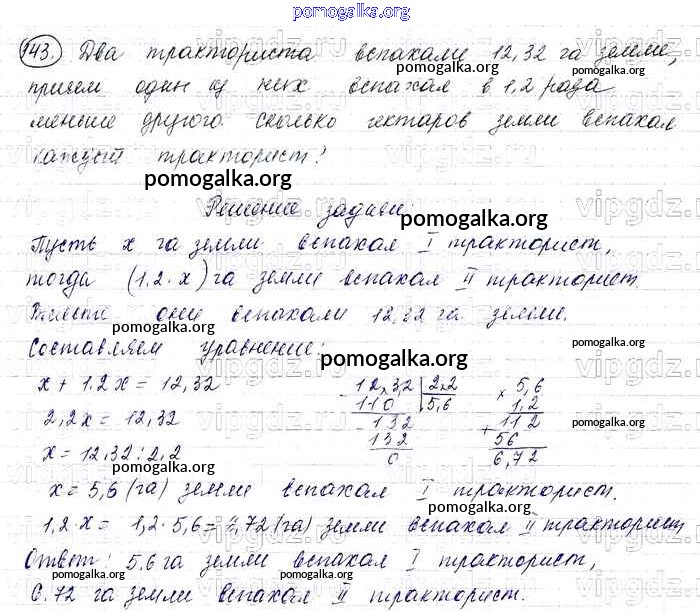 pomogalka.org
143. Два тракториста вспахали 12,32 га земли,
причем один из них вспахал в 1,2 раза
меньше другого. Сколько гектаров земли вспахал
каждый тракторист?
pomogalka.org
Решение задачи:
pomogalka.org
Пусть x га земли вспахал I тракторист,
тогда (1.2·x) га земли вспахал II тракторист.
Вместе они вспахали 12,32 га земли.
Составляем уравнение:
pomogalka.org
x + 1.2x = 12,32
2,2x = 12,32
x = 12,32 : 2,2
12,32 | 2,2
110 | 5,6
132
132
0
× 5,6
1,2
+ 112
56
6,72
x = 5,6 (га) земли вспахал I тракторист.
1,2·x = 1,2·5,6 = 6,72 (га) земли вспахал II тракторист
Ответ: 5,6 га земли вспахал I тракторист,
6.72 га земли вспахал II тракторист.
vipgdz.ru